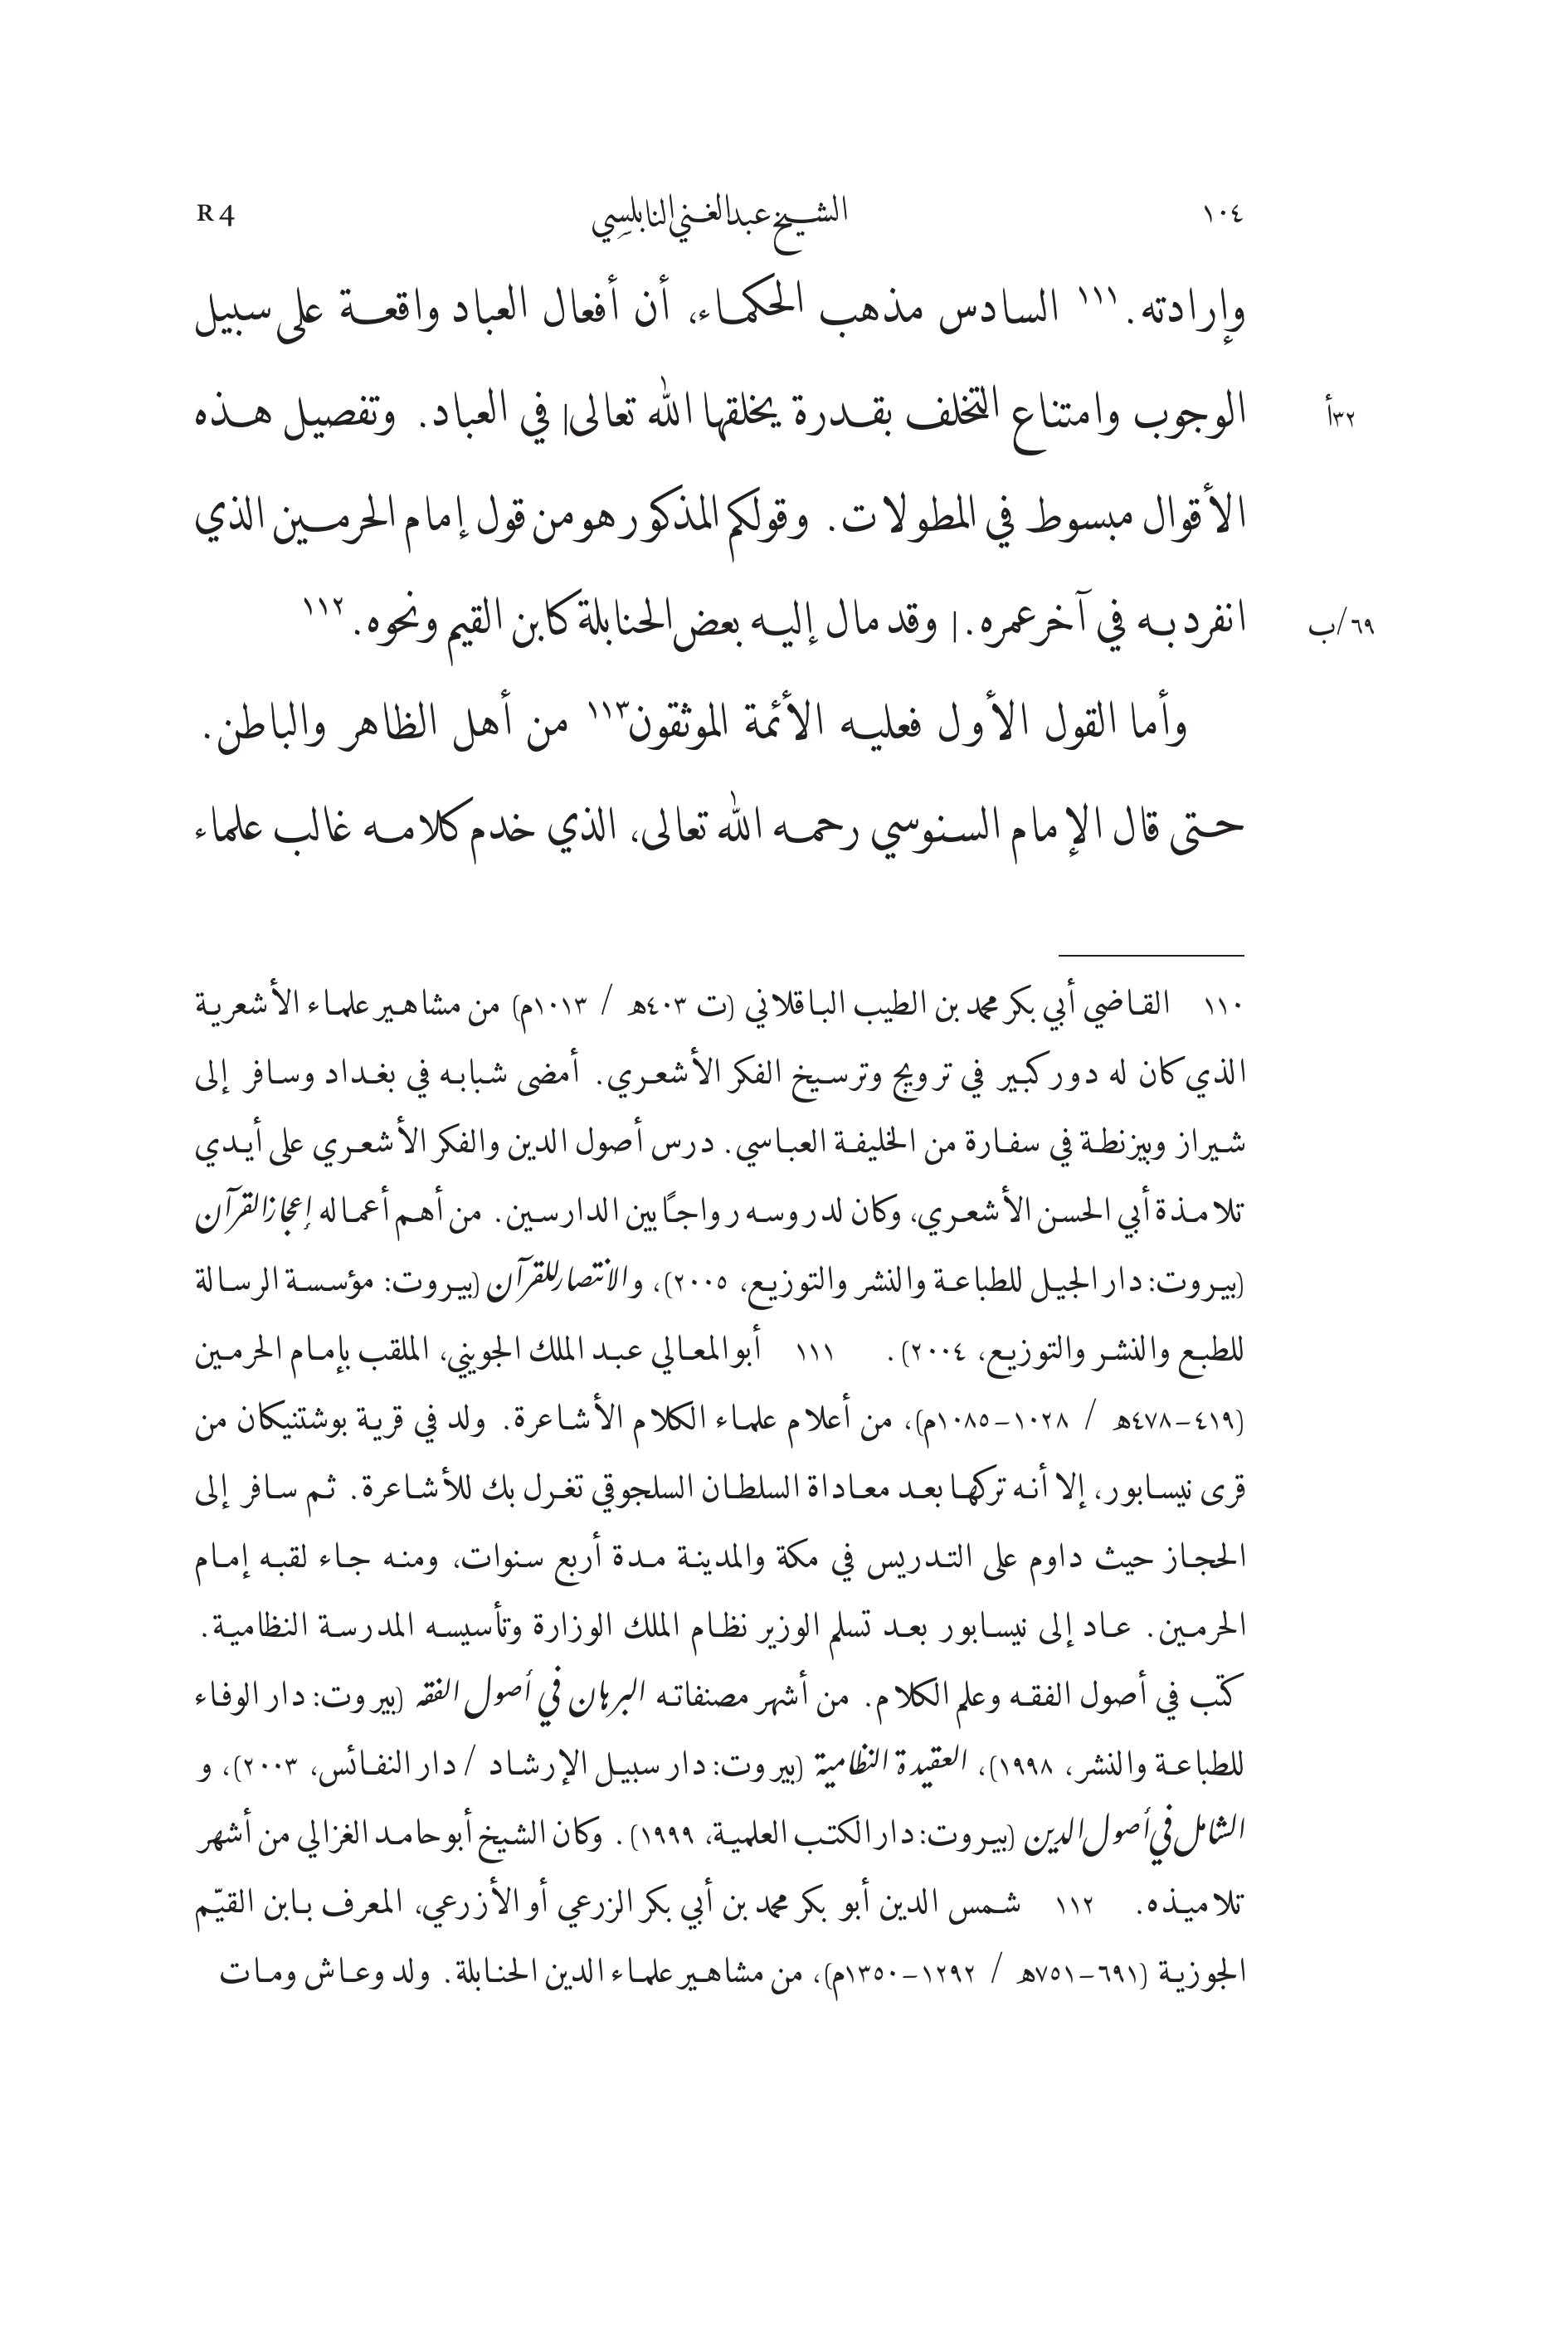 ١٠٤ الشيخ عبد الغني النابلسي R 4
وإرادته.١١١ السادس مذهب الحكماء، أن أفعال العباد واقعة على سبيل
٣٢أ الوجوب وامتناع التخلف بقدرة يخلقها الله تعالى| في العباد. وتفصيل هذه
الأقوال مبسوط في المطولات. وقولكم المذكور هو من قول إمام الحرمين الذي
٦٩/ب انفرد به في آخر عمره.| وقد مال إليه بعض الحنابلة كابن القيم ونحوه.١١٢
وأما القول الأول فعليه الأئمة الموثقون١١٣ من أهل الظاهر والباطن.
حتى قال الإمام السنوسي رحمه الله تعالى، الذي خدم كلامه غالب علماء
١١٠ القاضي أبي بكر محمد بن الطيب الباقلاني (ت ٤٠٣ه / ١٠١٣م) من مشاهير علماء الأشعرية
الذي كان له دور كبير في ترويج وترسيخ الفكر الأشعري. أمضى شبابه في بغداد وسافر إلى
شيراز وبيزنطة في سفارة من الخليفة العباسي. درس أصول الدين والفكر الأشعري على أيدي
تلامذة أبي الحسن الأشعري، وكان لدروسه رواجًا بين الدارسين. من أهم أعماله إعجاز القرآن
(بيروت: دار الجيل للطباعة والنشر والتوزيع، ٢٠٠٥)، والانتصار للقرآن (بيروت: مؤسسة الرسالة
للطبع والنشر والتوزيع، ٢٠٠٤). ١١١ أبو المعالي عبد الملك الجويني، الملقب بإمام الحرمين
(٤١٩–٤٧٨ه / ١٠٢٨–١٠٨٥م)، من أعلام علماء الكلام الأشاعرة. ولد في قرية بوشتنيكان من
قرى نيسابور، إلا أنه تركها بعد معاداة السلطان السلجوقي تغرل بك للأشاعرة. ثم سافر إلى
الحجاز حيث داوم على التدريس في مكة والمدينة مدة أربع سنوات، ومنه جاء لقبه إمام
الحرمين. عاد إلى نيسابور بعد تسلم الوزير نظام الملك الوزارة وتأسيسه المدرسة النظامية.
كتب في أصول الفقه وعلم الكلام. من أشهر مصنفاته البرهان في أصول الفقه (بيروت: دار الوفاء
للطباعة والنشر، ١٩٩٨)، العقيدة النظامية (بيروت: دار سبيل الإرشاد / دار النفائس، ٢٠٠٣)، و
الشامل في أصول الدين (بيروت: دار الكتب العلمية، ١٩٩٩). وكان الشيخ أبو حامد الغزالي من أشهر
تلاميذه. ١١٢ شمس الدين أبو بكر محمد بن أبي بكر الزرعي أو الأزرعي، المعرف بابن القيّم
الجوزية (٦٩١–٧٥١ه / ١٢٩٢–١٣٥٠م)، من مشاهير علماء الدين الحنابلة. ولد وعاش ومات